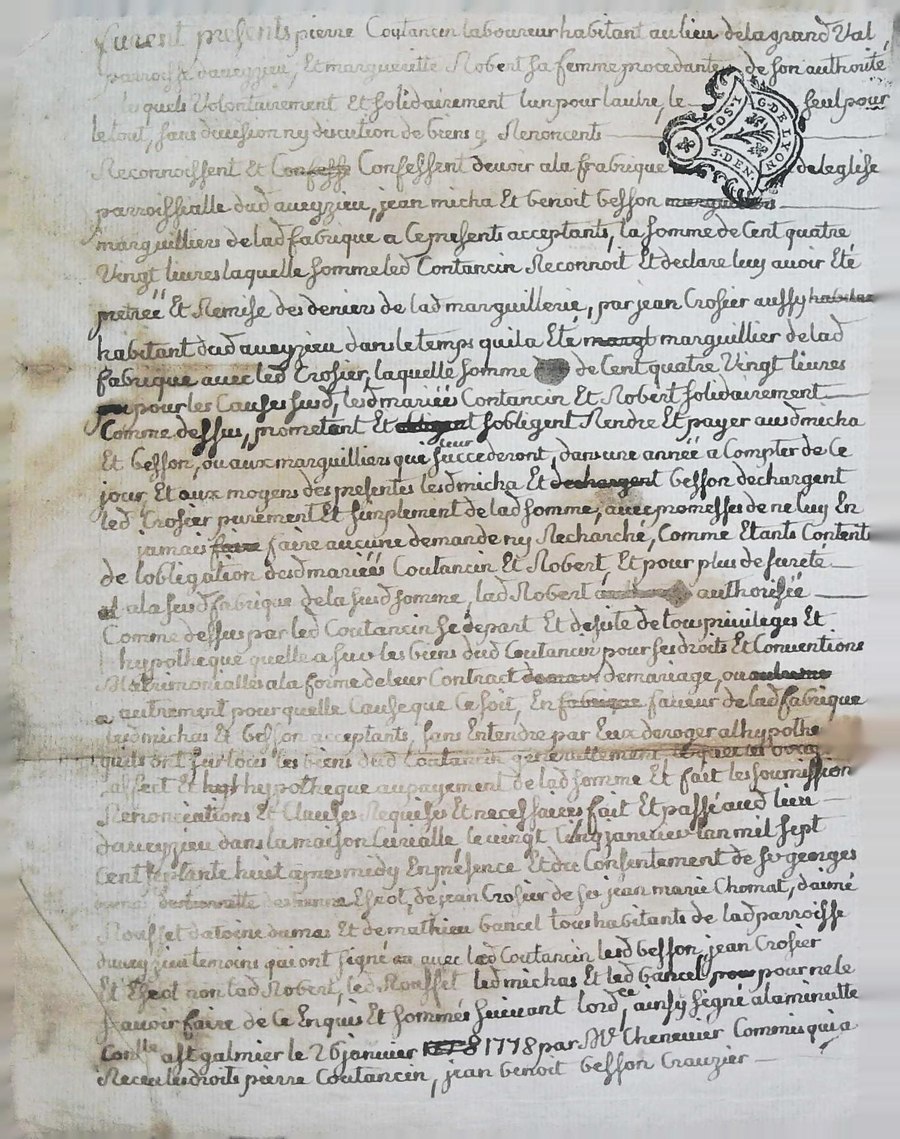 furent presents pierre Coutancin laboureur habitant au lieu dela grand Val
parroisse daveyzieu, Et marguerite Robert sa femme procedante de son authorité
lesquels Volontairement Et solidairement lun pour lautre, le seul pour
le tout, sans division ny discution de biens y Renoncents
Reconnoissent Et Confess Confessent devoir ala fabrique de leglise
G. DE LYON
3. DEN.
parroissialle dud aveyzieu, jean micha Et benoit besson marguilliers
marguilliers de lad fabrique a Ce presents acceptants, la somme de Cent quatre
Vingt livres laquelle somme led Contancin Reconnoit Et declare luy avoir Eté
pretréé Et Remise des deniers de lad marguillerie, par jean Crosier aussy habitan
habitant dud aveyzieu dans le temps quil a Eté margl marguillier de lad
fabrique avec led Crosier, laquelle somme de Cent quatre Vingt livres
pour les Causes susd, lesd mariéés Contancin Et Robert solidairement
Comme dessus, prometant Et obligent sobligent Rendre Et payer ausd micha
Et besson, ou aux marguilliers que leur succederont, dans une annéé a Compter de Ce
jour, Et aux moyens des presentes lesd micha Et dechargent besson dechargent
led Crosier purement Et simplement de lad somme, avec promesses de ne luy En
jamais faire faire aucune demande ny Recharché, Comme Etants Contents
de lobligation desd mariéés Coutancin Et Robert, Et pour plus de sureté
ala susd fabrique de la susd somme, lad Robert authoriséé
Comme dessus par led Coutancin se depart Et desiste de tous privileges Et
hypotheque quelle a sur les biens dud Coutancin pour ses droits Et Conventions
Matrimonialles ala forme de leur Contract demariage, ou autreme
autrement pour quelle Cause que Ce soit, En fabrique faveur de lad fabrique
lesd michas Et besson acceptants, sans Entendre par Eux deroger alhypothe
quils ont sur tous les biens dud Coutancin generallement
affect Et hyp hypotheque au payement de lad somme Et fait les soumission
Renonciations Et Clauses Requises Et necessaires fait Et passé aud lieu
daveyzieu dans la maison Curialle, le vingt Cinq janvier lan mil sept
Cent septente huit apres midy En presence Et du Consentement de sr georges
Escot, de jean Crosier de sr jean marie Chomat, daimé
Rousset datoine damas Et de mathieu bancel tous habitants de lad parroisse
daveyzieu temoins qui ont signé avec led Coutancin lesd besson, jean Crosier
Et Escot non lad Robert, led Rousset led michas Et led bancel pour pour ne le
scavoir faire de Ce Enquis Et sommés suivant lordce, ainsy signé ala minutte
Conllé a st galmier le 26 janvier 1778 1778 par Mr Chenevier Commis qui a
Receu les droits pierre Coutancin, jean benoit besson Crauzier